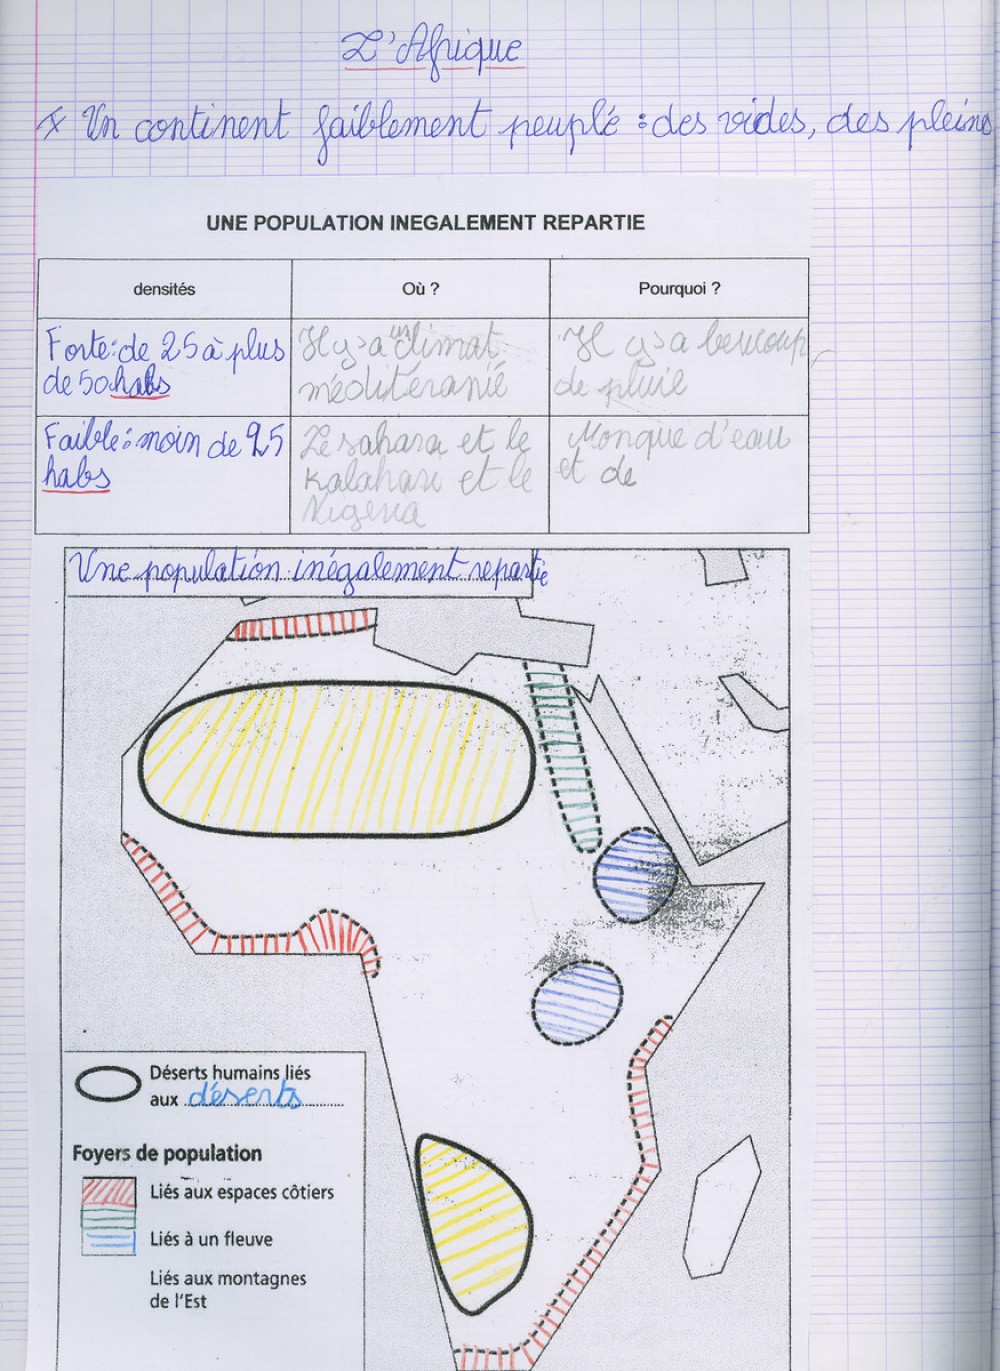 L'Afrique
* Un continent faiblement peuplé : des vides, des pleins
UNE POPULATION INEGALEMENT REPARTIE
densités
Où ?
Pourquoi ?
Forte : de 25 à plus
de 50 habs
Il y a un climat
méditeranié
Il y a beucoup
de pluie
Faible : moin de 25
habs
Le sahara et le
Kalahari et le
Nigeria
Monque d'eau
et de
Une population inégalement repartie
Déserts humains liés
aux déserts
Foyers de population
Liés aux espaces côtiers
Liés à un fleuve
Liés aux montagnes
de l'Est